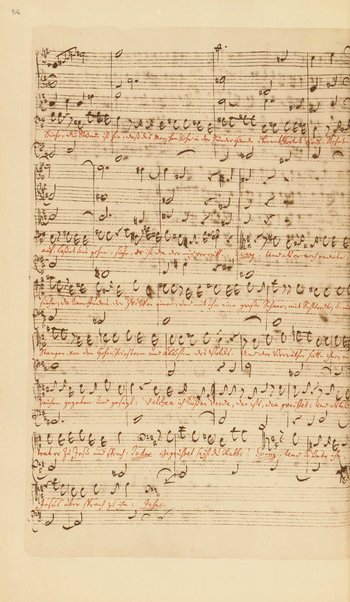 Siehe, die Stunde ist hie, daß des Menschen Sohn in der Sünder Hände überantwortet wird. Stehet
auf, lasset uns gehen, siehe, er ist da, der mich verräth. Und als er noch redete
siehe, da kam Judas der Zwölfen einer, und mit ihm eine große Schaar, mit Schwertern u.
Stangen, von den Hohenpriestern und Ältesten des Volks. Und der Verräther hatte ihnen
Zeichen gegeben und gesagt: Welchen ich küssen werde, der ists, den greiffet. Und
trat er zu Jesu und sprach: Judas. Gegrüßet seist du Rabbi! Evang. Und küssete ihn
Jesus aber sprach zu ihm Jesus